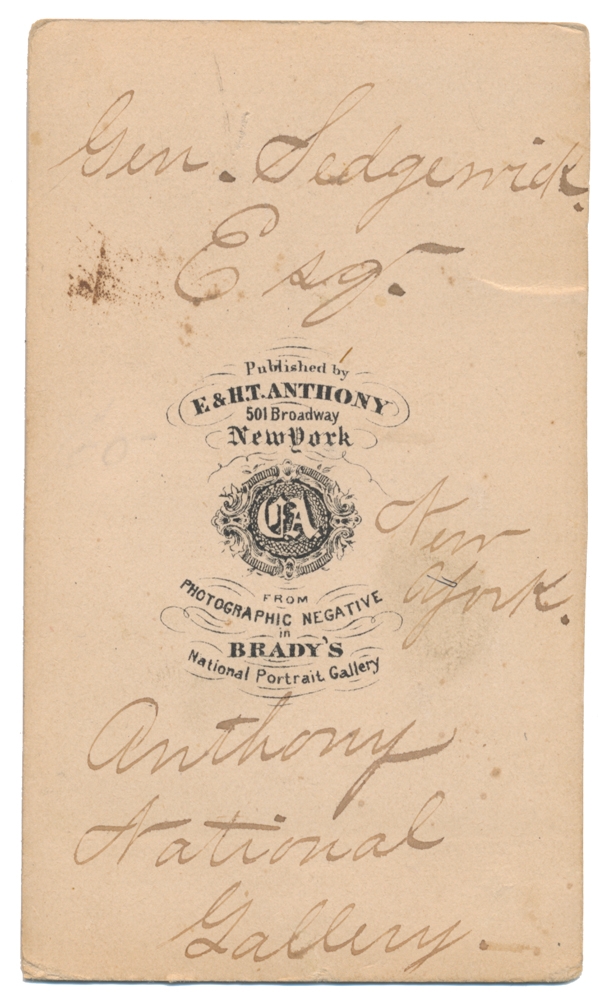 Gen. Sedgewick.
Esq.
Published by
E & H.T. ANTHONY
501 Broadway
New York
EA
FROM
PHOTOGRAPHIC NEGATIVE
in
BRADY'S
National Portrait Gallery
New
York.
Anthony
National
Gallery.